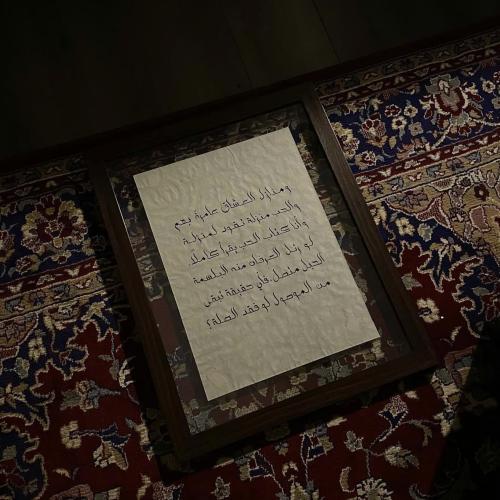 ومنازل العشاق عامرة بهم
والحب منزلة تقود لمنزلة
وأنا كتاب الحب يقرأ كاملا
لو رتل العرفان منه البسملة
الحبل متصل فأي حقيقة تبقى
من الموصول لو فقد الصلة؟